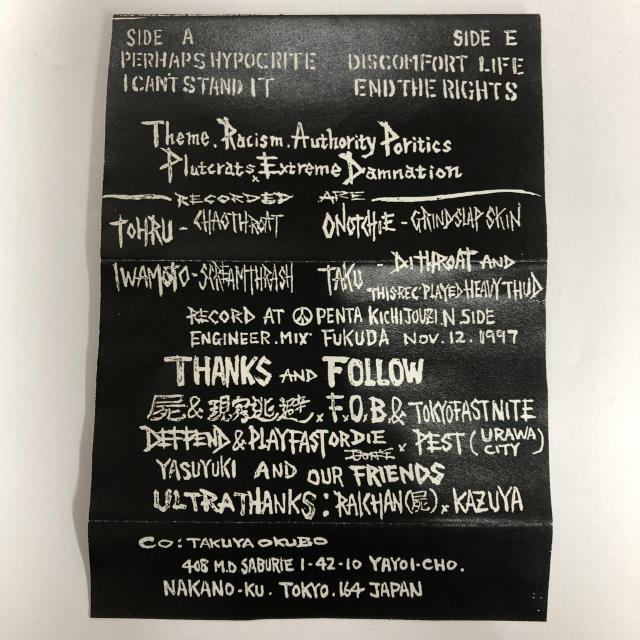 SIDE A
PERHAPS HYPOCRITE
I CAN'T STAND IT
SIDE E
DISCOMFORT LIFE
END THE RIGHTS
Theme. Racism. Authority Poritics
Plutcrats x Extreme Damnation
RECORDED ARE
TOHRU - CHAOTHROAT
ONOTCHIE - GRINDSLAP SKIN
IWAMOTO - SCREAMTHRASH
TAKU - DITHROAT AND
THIS REC PLAYED HEAVY THUD
RECORD AT PENTA KICHIJOUZI N.SIDE
ENGINEER.MIX FUKUDA NOV.12.1997
THANKS AND FOLLOW
屍 & 現実逃避 x F.O.B & TOKYO FAST NITE
& PLAY FAST OR DIE x PEST (URAWA CITY)
DON'T
YASUYUKI AND OUR FRIENDS
ULTRA THANKS : RAICHAN (屍) x KAZUYA
CO : TAKUYA OKUBO
408 M.D SABURIE 1-42-10 YAYOI-CHO.
NAKANO-KU. TOKYO. 164 JAPAN